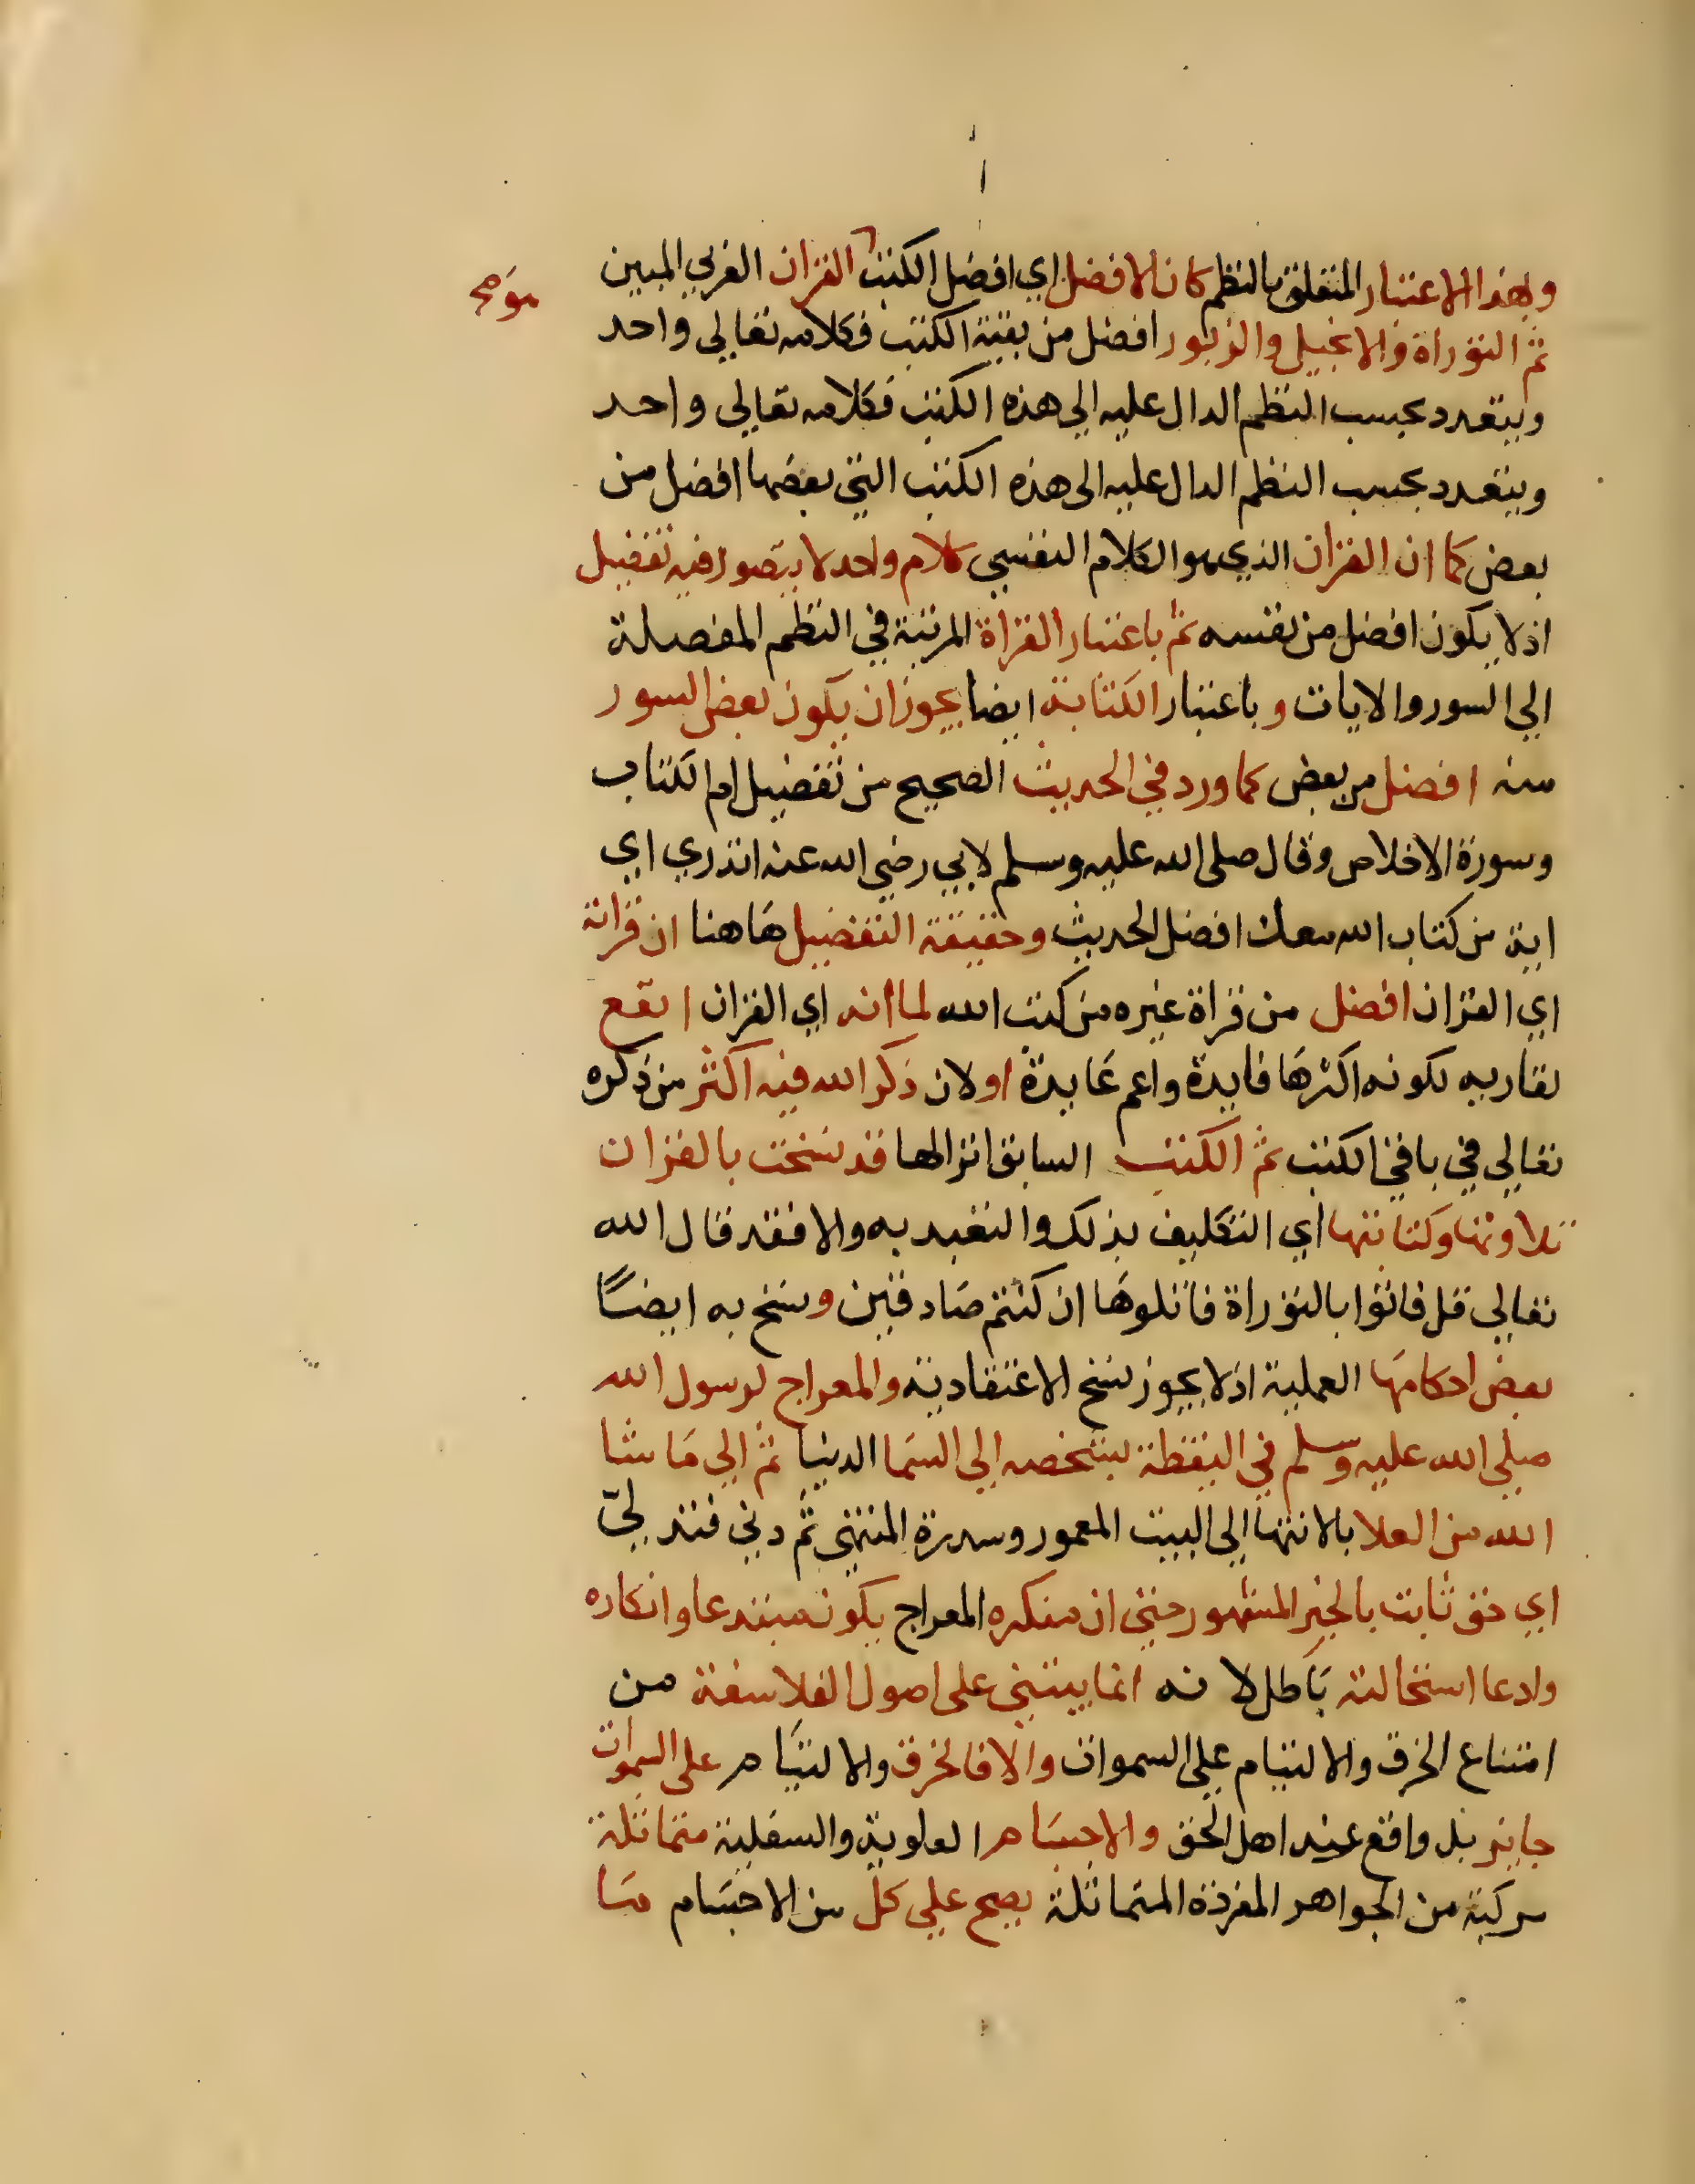 وبهذا الاعتبار المتعلق بالنظم كان الافضل اي افضل الكتب القران العربي المبين
هو صح
ثم التوراة والانجيل والزبور افضل من بقية الكتب فكلامه تعالي واحد
ويتعدد بحسب النظم الدال عليه الي هذه الكتب فكلامه تعالي واحد
ويتعدد بحسب النظم الدال عليه الى هذه الكتب التي بعضها افضل من
بعض كما ان القران الذي هو الكلام النفسي كلام واحد لا يتصور فيه تفضيل
اذ لا يكون افضل من نفسه ثم باعتبار القراة المرتبة في النظم المفصلة
الي السور والايات وباعتبار الكتابة ايضا يجوز ان يكون بعض السور
منه افضل من بعض كما ورد في الحديث الصحيح من تفضيل ام الكتاب
وسورة الاخلاص وقال صلى الله عليه وسلم لابي رضي الله عنه اتدري اي
اية من كتاب الله معك افضل الحديث وحقيقة التفضيل هاهنا ان قراته
اي القران افضل من قراة غيره من كتب الله لما انه اي القران انفع
لقاريه لكونه اكثرها فايدة واعم عايدة او لان ذكر الله فيه اكثر من ذكره
تعالي في باقي الكتب ثم الكتب السابق انزالها قد نسخت بالقران
تلاوتها وكتابتها اي التكليف بذلك والتعبد به والا فقد قال الله
تعالي قل فاتوا بالتوراة فاتلوها ان كنتم صادقين ونسخ به ايضًا
بعض احكامها العملية اذ لا يجوز نسخ الاعتقادية والمعراج لرسول الله
صلي الله عليه وسلم في اليقظة بشخصه الي السما الدنيا ثم الي ما شا
الله من العلا بالانتها الي البيت المعمور وسدرة المنتهى ثم دني فتدلي
اي حق ثابت بالخبر المشهور حتي ان منكره المعراج يكون مبتدعا وانكاره
وادعا استحالته باطل لانه انما يبتني على اصول الفلاسفة من
امتناع الخرق والالتيام علي السموات والا فالخرق والالتيام على السموات
جايز بل واقع عند اهل الحق والاجسام العلوية والسفلية متماثلة
مركبة من الجواهر المفردة المتماثلة يصح علي كل من الاجسام ما